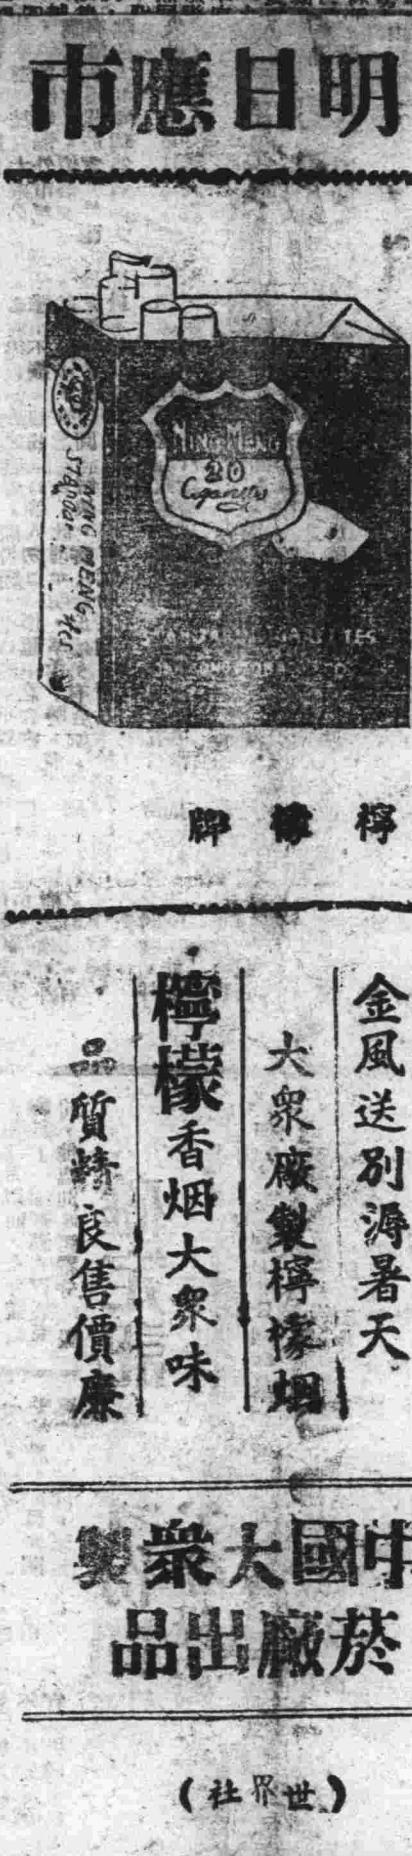 明日應市
NING MENG
20
Cigarettes
NING MENG
檸檬牌
金風送別溽暑天
大眾廠製檸檬烟
檸檬香烟大眾味
品質精良售價廉
中國大眾製
菸廠出品
(世界社)